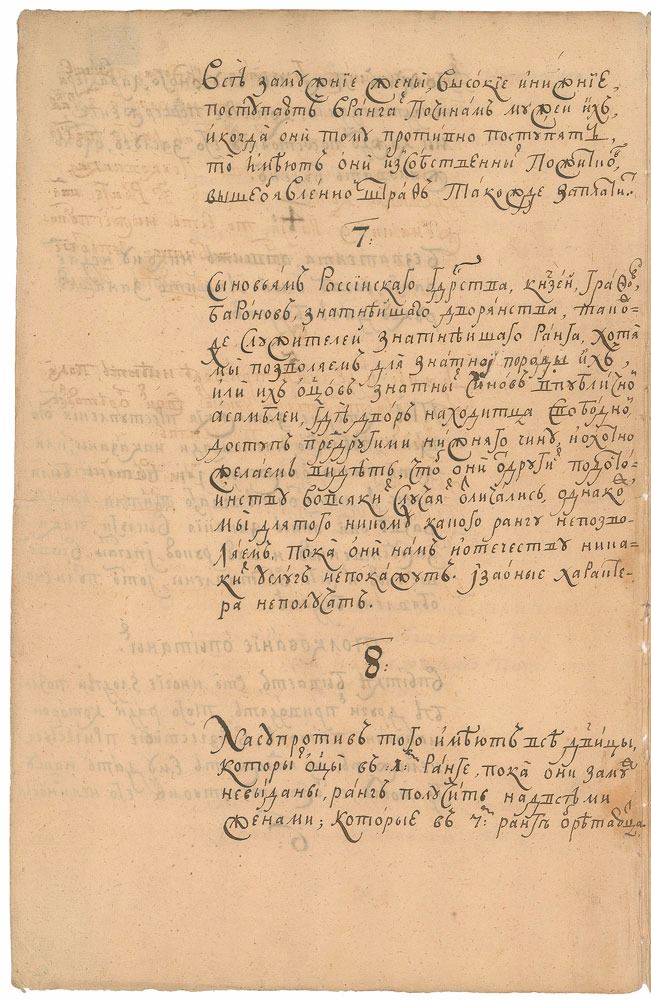 Всѣ замужніе жены, высокіе инижніе,
поступаютъ врангаⷯ починамъ мужей ихъ,
икогда они тому противно поступятъ,
то имѣютъ они изсобственныⷯ
вышеобявленно штраѳъ такожде
7:
Сыновьямъ Россійскаго князей, граѳоⷡ,
бароновъ, знатнѣйшаго дворянства, такоⷤ-
де служителей знатнѣйшаго ранга, хотя
мы позволяемъ для знатной породы ихъ,
или ихъ знатныⷯ чиновъ впубличноⷨ
асамблеи, гдѣ дворъ находитца свободноⷨ
доступъ предругими нижняго чину, иохотно
желаемъ видѣть, чтоⷠ они ѿдругиⷯ подосто-
инству вовсякиⷯ случаяⷯ ѿличались, однакоⷤ
мы длятого никому какого рангу непозво-
ляемъ. пока они намъ иотечеству ника-
киⷯ услугъ непокажутъ. ізаоные характе-
ра неполучатъ.
8:
Насупротивъ того имѣютъ всѣ дѣвицы,
которыⷯ ѿцы въ 1ᵐ рангѣ, пока они замуⷤ
невыданы, рангъ получить надвсѣми
женами; которые въ